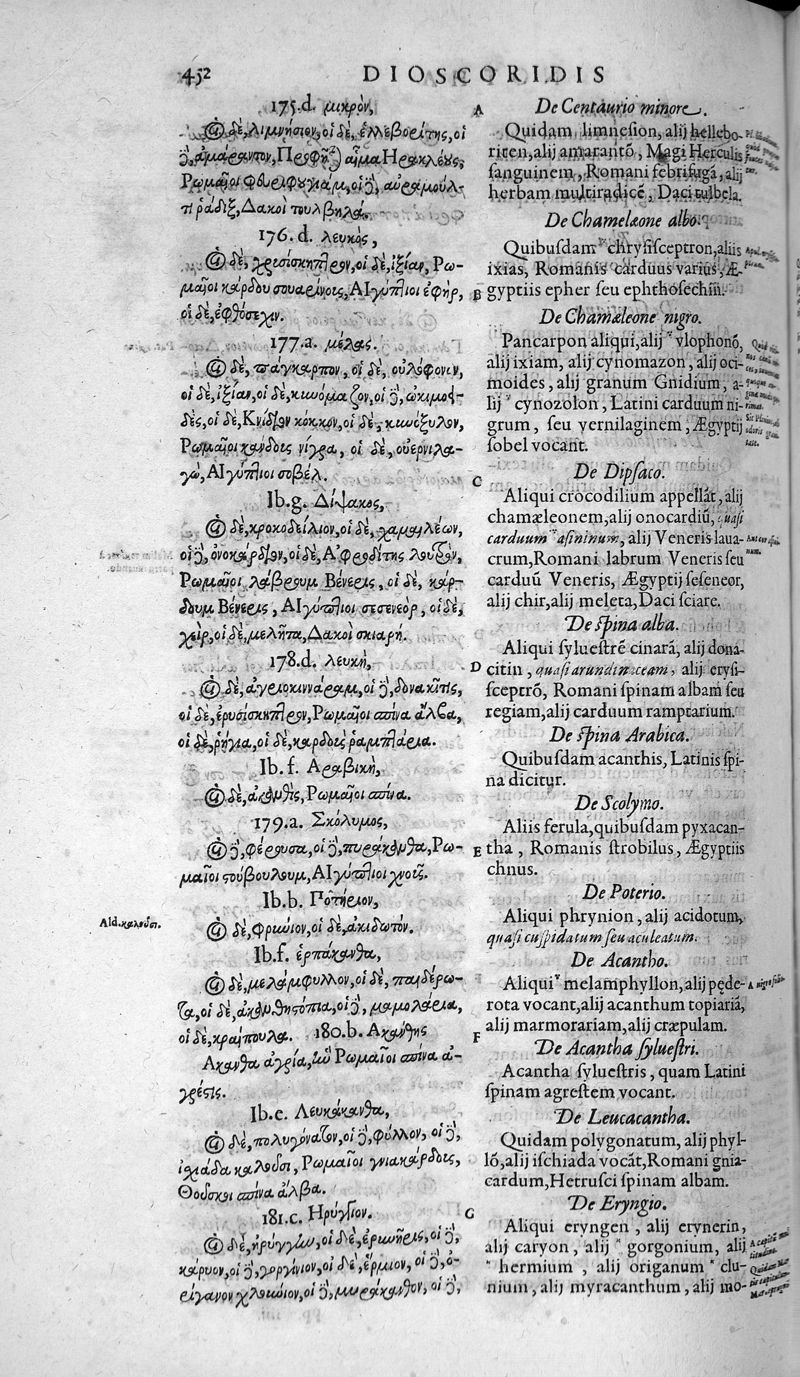 452 DIOSCORIDIS
175.d. μικρὸν,
δὲ, λιμνήσιον, οἱ δὲ, ἐλλεβορίτης, οἱ
δὲ, ἀμάραντον, αἷμα Ηρακλέους,
Ρωμαῖοι οἱ δὲ,
Δακοὶ τουλβηλά.
176.d. λευκὸς,
δὲ, χρισίσκηπτρον, οἱ δὲ, ἰξίαν, Ρω-
μαῖοι Αἰγύπτιοι ἐφὴρ,
οἱ δὲ, ἐφθόσεχιν.
177.a. μέλας.
δὲ, πάγκαρπον, οἱ δὲ, οὐλόφονον,
οἱ δὲ, ἰξίαν, οἱ δὲ, κυνόμαζον, οἱ δὲ, ὠκιμοει-
δὲς, οἱ δὲ, Κνίδιον κόκκον, οἱ δὲ, κυνόξυλον,
Ρωμαῖοι κάρδους νίγρα, οἱ δὲ, οὐερνιλα-
γὼ, Αἰγύπτιοι σοβέλ.
Ib.g. Δίψακος,
δὲ, κροκοδείλιον, οἱ δὲ, χαμαιλέων,
οἱ δὲ, ὀνοκάρδιον, οἱ δὲ, Α᾿φροδίτης λουτρὸν,
Ρωμαῖοι λάβρουμ Βένερις, οἱ δὲ, κάρ-
δουμ Βένερις, Αἰγύπτιοι σεσενεὸρ, οἱ δὲ,
χεὶρ, οἱ δὲ, μελῆτα, Δακοὶ σκιαρή.
178.d. λευκὴ,
δὲ, ἀγριοκιννάραμ, οἱ δὲ, δονακῖτις,
οἱ δὲ, ἐρυσίσκηπτρον, Ρωμαῖοι σπίνα ἄλβα,
οἱ δὲ, ῥήγια, οἱ δὲ, κάρδους ῥαμπτάρια.
Ib.f. Αραβικὴ,
δὲ, ἀκανθὶς, Ρωμαῖοι σπίνα.
179.a. Σκόλυμος,
δὲ, φέρουλα, οἱ δὲ, πυράκανθα, Ρω-
μαῖοι Αἰγύπτιοι
Ib.b. Ποτήριον,
Ald. καλοῦσι.
δὲ, φρύνιον, οἱ δὲ, ἀκιδωτόν.
Ib.f. ἑρπάκανθα,
δὲ, μελάμφυλλον, οἱ δὲ, παιδέρω-
τα, οἱ δὲ, οἱ δὲ, μαμολάρια,
οἱ δὲ, κράιπουλα. 180.b. Ακάνθης
Ακανθα ἀγρία, ἣν Ρωμαῖοι σπίνα ἀ-
γρέστις.
Ib.e. Λευκάκανθα,
δὲ, πολυγόνατον, οἱ δὲ, φύλλον, οἱ δὲ,
ἰχιάδα καλοῦσι, Ρωμαῖοι γνιακάρδους,
Θοῦσκοι σπίνα ἄλβα.
181.c. Ηρύγγιον.
δὲ, ἠρύγγην, οἱ δὲ, ἐρυνηρὶς, οἱ δὲ,
κάρυον, οἱ δὲ, γοργίνιον, οἱ δὲ, ἕρμιον, οἱ δὲ, ὀ-
ρίγανον χλούνιον, οἱ δὲ, μυράκανθον, οἱ δὲ,
A
B
C
D
E
F
G
De Centaurio minore.
Quidam limnesion, alij hellebo-
riten, alij amarantō, Magi Herculis
sanguinem, Romani febrifugā, alij
herbam multiradicē, Daci tulbela.
De Chamæleone albo.
Quibusdam chrysisceptron, aliis
ixias, Romanis carduus varius, Æ-
gyptiis epher seu ephthosechin.
De Chamæleone nigro.
Pancarpon aliqui, alij vlophonō,
alij ixiam, alij cynomazon, alij oci-
moides, alij granum Gnidium, a-
lij cynozolon, Latini carduum ni-
grum, seu vernilaginem, Ægyptij
sobel vocant.
De Dipsaco.
Aliqui crocodilium appellāt, alij
chamæleonem, alij onocardiū, quasi
carduum asininum, alij Veneris laua-
crum, Romani labrum Veneris seu
carduū Veneris, Ægyptij seseneor,
alij chir, alij meleta, Daci sciare.
De spina alba.
Aliqui syluestrē cinarā, alij dona-
citin, quasi arundinaceam, alij erysi-
sceptrō, Romani spinam albam seu
regiam, alij carduum ramptarium.
De spina Arabica.
Quibusdam acanthis, Latinis spi-
na dicitur.
De Scolymo.
Aliis ferula, quibusdam pyxacan-
tha, Romanis strobilus, Ægyptiis
chnus.
De Poterio.
Aliqui phrynion, alij acidotum,
quasi cuspidatum seu aculeatum.
De Acantho.
Aliqui melamphyllon, alij pęde-
rota vocant, alij acanthum topiariā,
alij marmorariam, alij cræpulam.
De Acantha syluestri.
Acantha syluestris, quam Latini
spinam agrestem vocant.
De Leucacantha.
Quidam polygonatum, alij phyl-
lō, alij ischiada vocāt, Romani gnia-
cardum, Hetrusci spinam albam.
De Eryngio.
Aliqui eryngen, alij erynerin,
alij caryon, alij gorgonium, alij
hermium, alij origanum clu-
nium, alij myracanthum, alij mo-